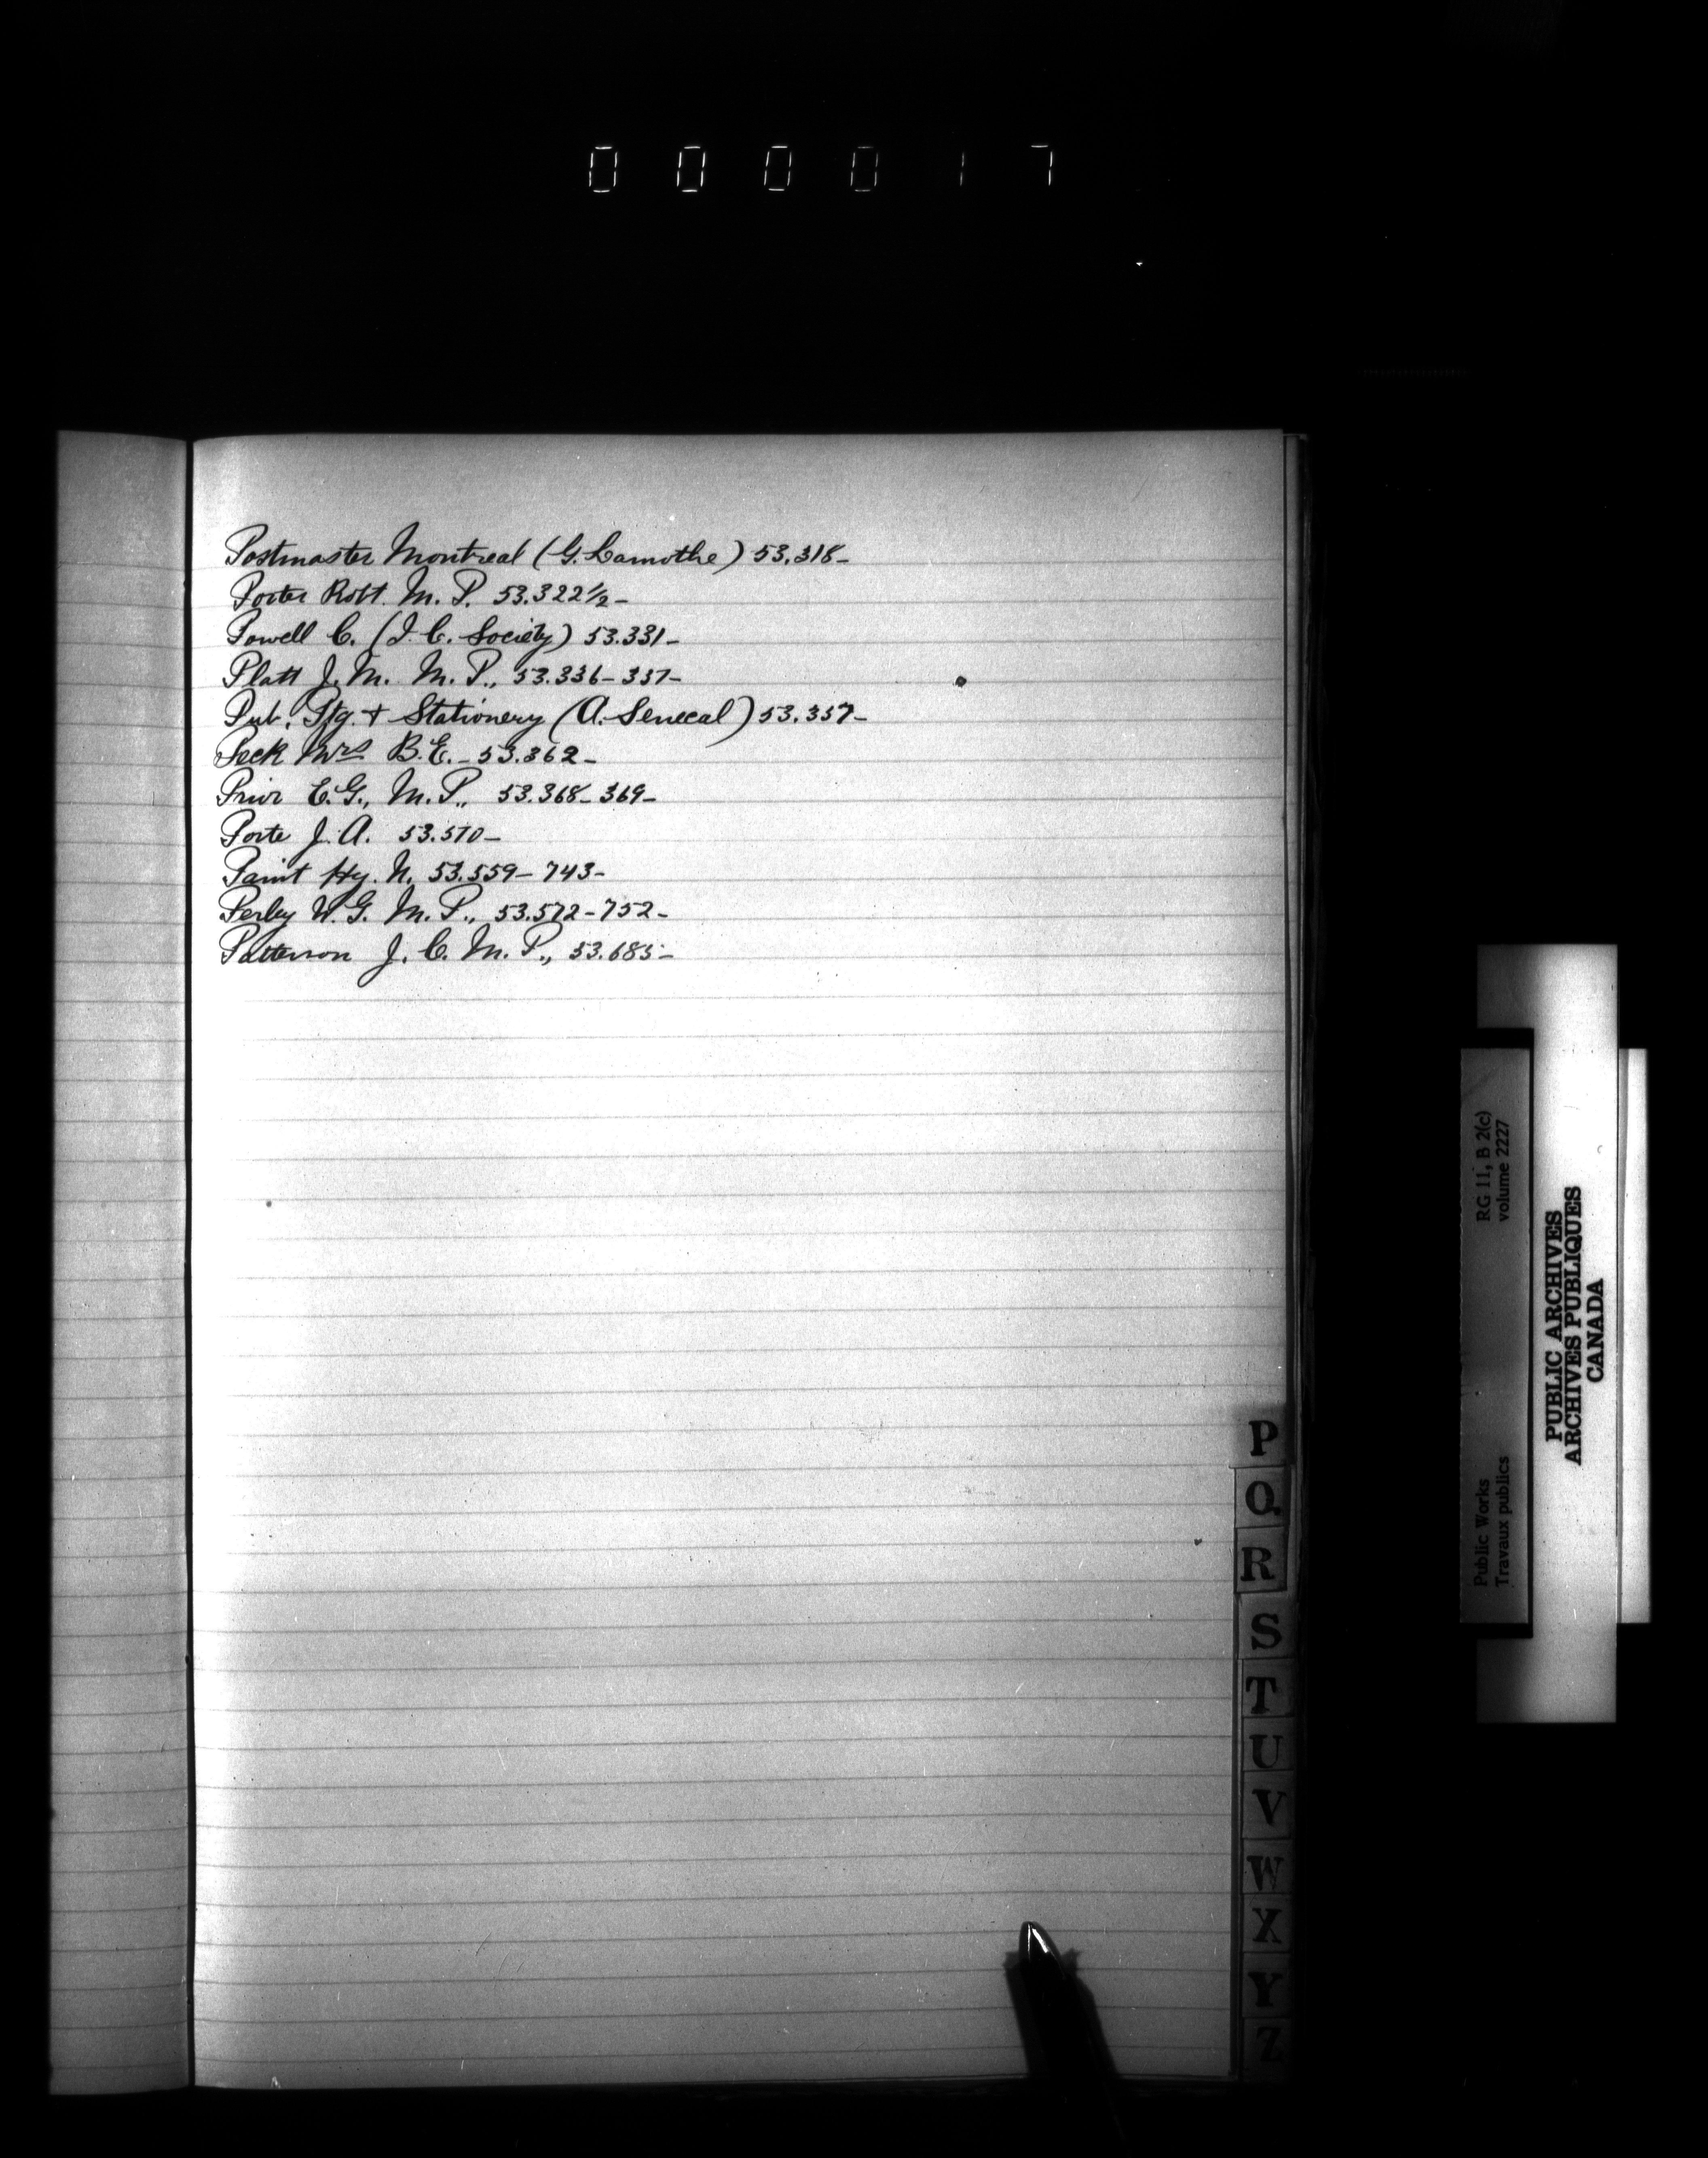 000017
Postmaster Montreal (G. Lamothe) 53.318-
Porter Robt. M. P. 53.322½-
Powell C. (I. C. Society) 53.331-
Platt J. M. M. P., 53.336-337-
Pub. Ptg. + Stationery (A. Senecal) 53.357-
Peck Mrs B. E. - 53.362-
Prior E. G., M. P., 53.368-369-
Porte J. A. 53.570-
Paint Hy. N. 53.559-743-
Perley W. G. M. P., 53.572-752-
Patterson J. C. M. P., 53.685-
P
Q
R
S
T
U
V
W
X
Y
Z
RG 11, B 2(c)
volume 2227
Public Works
Travaux publics
PUBLIC ARCHIVES
ARCHIVES PUBLIQUES
CANADA